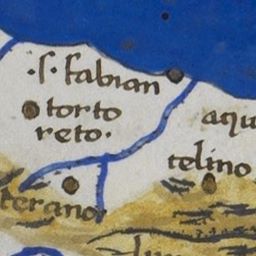 ·s· fabian
torto
reto·
aqu
telino
terano